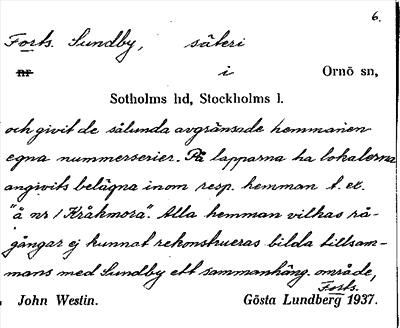 6.
Forts. Sundby, säteri
nr i Ornö sn,
Sotholms hd, Stockholms l.
och givit de sålunda avgränsade hemmanen
egna nummerserier. På lapparna ha lokalerna
angivits belägna inom resp. hemman t. ex.
"å nr 1 Kråkmora". Alla hemman vilkas rå-
gångar ej kunnat rekonstrueras bilda tillsam-
mans med Sundby ett sammanhäng. område,
Forts.
John Westin. Gösta Lundberg 1937.